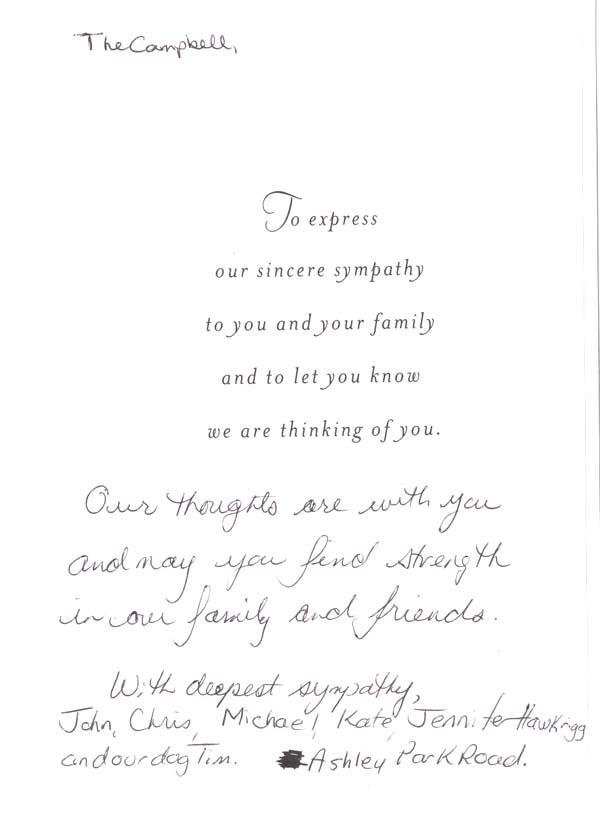 The Campbell,
To express
our sincere sympathy
to you and your family
and to let you know
we are thinking of you.
Our thoughts are with you
and may you find strength
in our family and friends.
With deepest sympathy,
John, Chris, Michael, Kate, Jennifer Hawkrigg
and our dog Tim. Ashley Park Road.